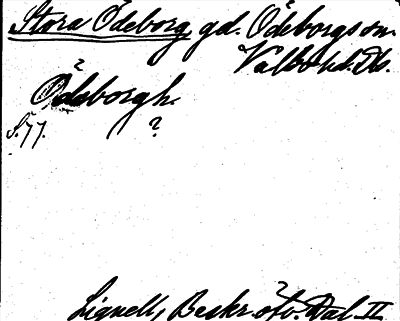 Stora Ödeborg gd. Ödeborgs sn.
Valbo hd. Ds.
?
Ödeborgh.
S. 77. ?
?
Lignell, Beskr. öfv. Dal II